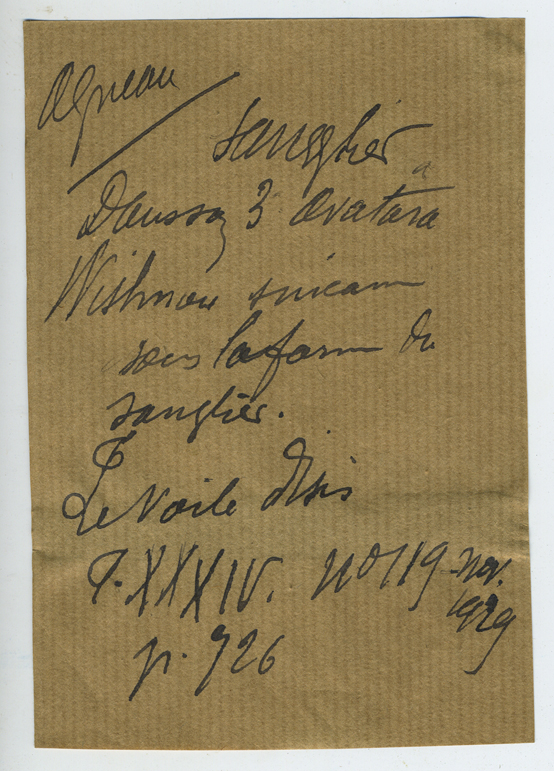 Agneau
sanglier
Dans sa 3 avatara
Wishnou s'incarn
sous la form du
sanglier.
Le Voile d'Isis
T. XXXIV. no 119 nov.
1929
p. 726